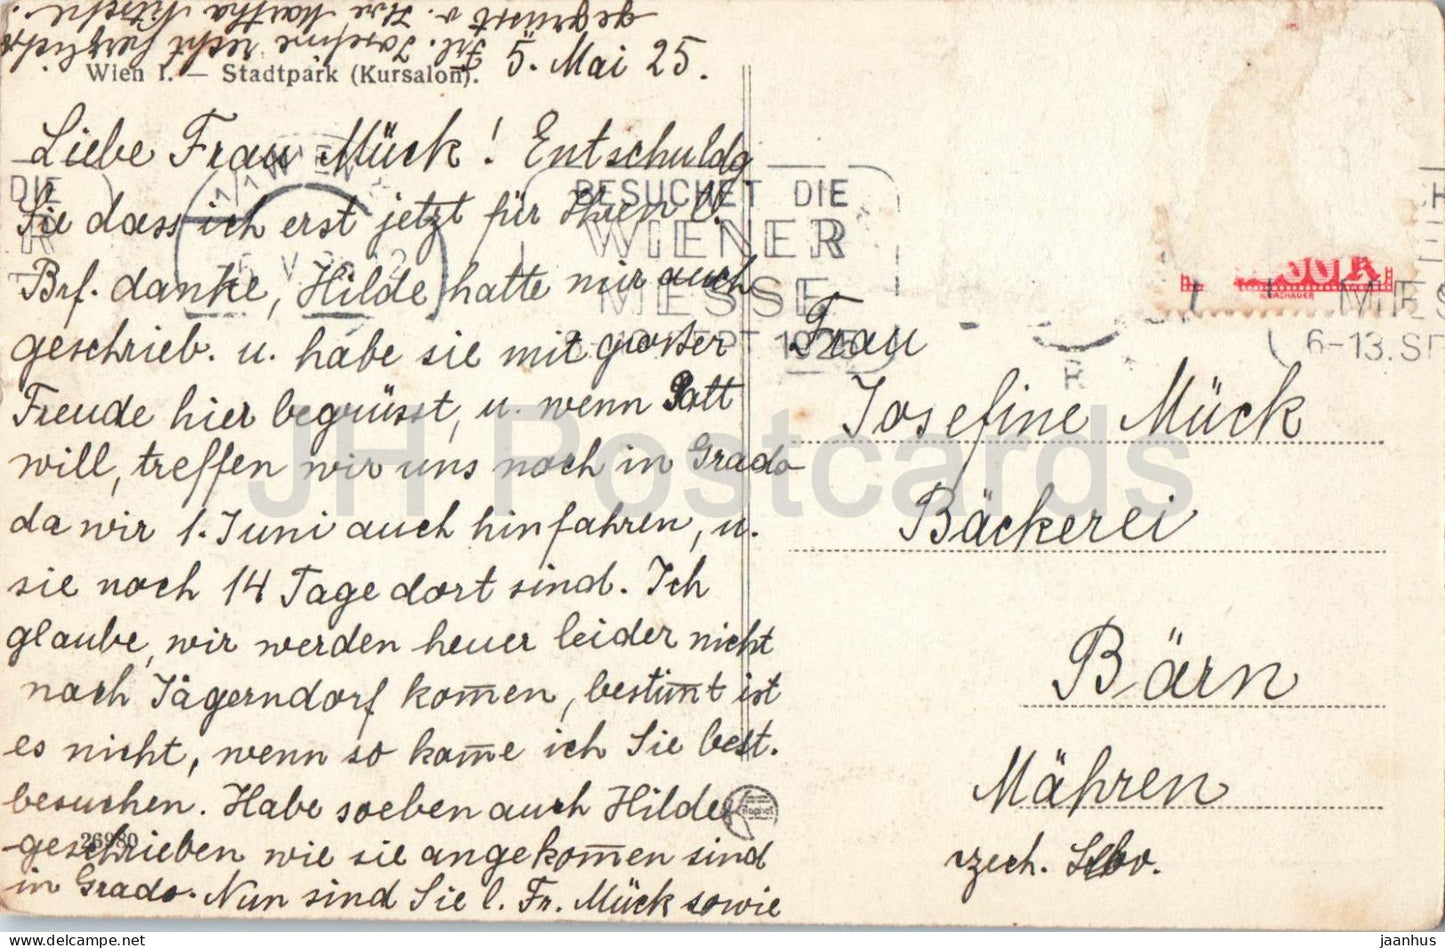 Wien I. — Stadtpark (Kursalon). 5. Mai 25.
Liebe Frau Mück! Entschuldg
Sie dass ich erst jetzt für Ihren l.
Brf. danke, Hilde hatte mir auch
geschrieb. u. habe sie mit großer
Freude hier begrüsst, u. wenn Gott
will, treffen wir uns noch in Grado
da wir 1. Juni auch hinfahren, u.
sie noch 14 Tage dort sind. Ich
glaube, wir werden heuer leider nicht
nach Jägerndorf kom̅en, bestim̅t ist
es nicht, wenn so kom̅e ich Sie best.
besuchen. Habe soeben auch Hilde
geschrieben wie sie angekom̅en sind
in Grado. Nun sind Sie l. Fr. Mück sowie
Frl. Josefine recht herzlichst
gegrüsst v. Ihre Martha
26980
Frau
Josefine Mück
Bäckerei
Bärn
Mähren
BESUCHET DIE
WIENER
MESSE
SEPT 1925
1/1 WIEN
V
DIE
R
MES
6–13. SE
JH Postcards
jaanhus
delcampe.net